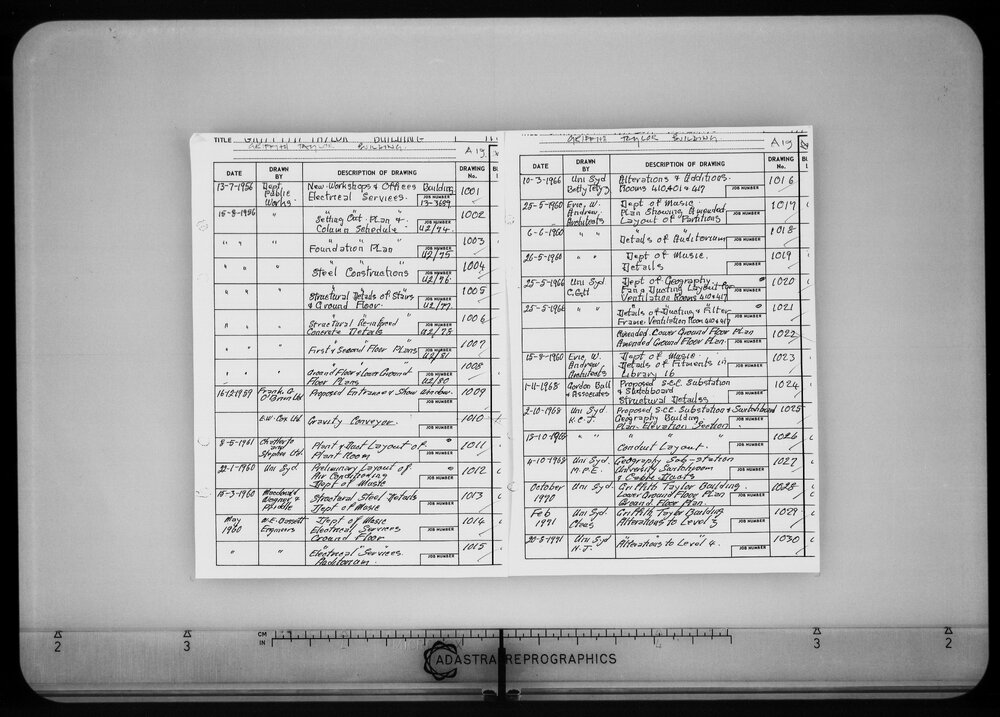 TITLE GRIFFITH TAYLOR BUILDING
GRIFFITH TAYLOR BUILDING. A19
DATE DRAWN BY DESCRIPTION OF DRAWING DRAWING No.
13-7-1956 Dept. Public Works. New Workshops & Offices Building Electrical Services. JOB NUMBER 13-3659 1001
15-8-1956 " Setting Out Plan & Column Schedule JOB NUMBER U2/74. 1002
" " " Foundation Plan JOB NUMBER U2/75 1003
" " " Steel Constructions JOB NUMBER U2/76 1004
" " " Structural Details of Stairs & Ground Floor. JOB NUMBER U2/77 1005
" " " Structural Re-inforced Concrete Details JOB NUMBER U2/78 1006
" " " First & Second Floor Plans JOB NUMBER U2/81 1007
" " " Ground Floor & Lower Ground Floor Plans JOB NUMBER U2/80 1008
16-12-1959 Frank G. O'Brien Ltd Proposed Entrance & Show Window. JOB NUMBER 1009
E.W. Cox Ltd Gravity Conveyor. JOB NUMBER 1010
8-5-1961 and Stephen Ltd. Plant & Duct Layout of Plant Room JOB NUMBER 1011
22-1-1960 Uni Syd Preliminary Layout of Air Conditioning Dept of Music JOB NUMBER 1012
15-3-1960 Macdonald Wagner & Priddle Structural Steel Details Dept of Music JOB NUMBER 1013
May 1960 W.E. Bassett Engineers Dept of Music Electrical Services Ground Floor JOB NUMBER 1014
" " Electrical Services. Auditorium. JOB NUMBER 1015
GRIFFITH TAYLOR BUILDING A19
DATE DRAWN BY DESCRIPTION OF DRAWING DRAWING No.
10-3-1966 Uni Syd Betty Alterations & Additions. Rooms 410, 401 & 417 JOB NUMBER 1016
25-5-1960 Eric, W. Andrew, Architects Dept of Music Plan Showing Amended Layout of Partitions JOB NUMBER 1017
6-6-1960 " " Details of Auditorium JOB NUMBER 1018
26-5-1960 " " Dept of Music. Details JOB NUMBER 1019
25-5-1966 Uni Syd Dept of Geography Fan & Ducting Layout For Ventilation Rooms 410 & 417 JOB NUMBER 1020
25-5-1966 " " Details of Ducting & Filter Frame. Ventilation Room 410 & 417 JOB NUMBER 1021
Amended Lower Ground Floor Plan Amended Ground Floor Plan. JOB NUMBER 1022
15-8-1960 Eric, W. Andrew, Architects Dept of Music. Details of Fitments in Library 16 JOB NUMBER 1023
1-11-1968 Gordon Ball & Associates Proposed S.C.C. Substation & Switchboard Structural Details JOB NUMBER 1024
2-10-1968 Uni Syd K.C.J. Proposed S.C.C. Substation & Switchboard Geography Building. Plan. Elevation Section JOB NUMBER 1025
" " Conduit Layout. JOB NUMBER 1026
4-10-1968 Uni Syd. M.P.E. Geography Sub-station University Switchroom & Cable Ducts JOB NUMBER 1027
October 1970 Uni Syd. Griffith Taylor Building. Lower Ground Floor Plan Ground Floor Plan JOB NUMBER 1028
Feb 1971 Uni Syd Griffith Taylor Building Alterations to Level 3 JOB NUMBER 1029
20-8-1971 Uni Syd N.J. Alterations to Level 4. JOB NUMBER 1030
2 3 CM IN 3 2
ADASTRA REPROGRAPHICS